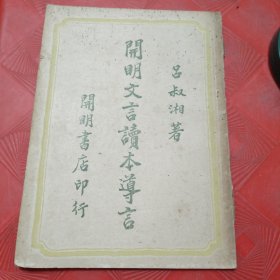 呂叔湘著
開明文言讀本導言
開明書店印行